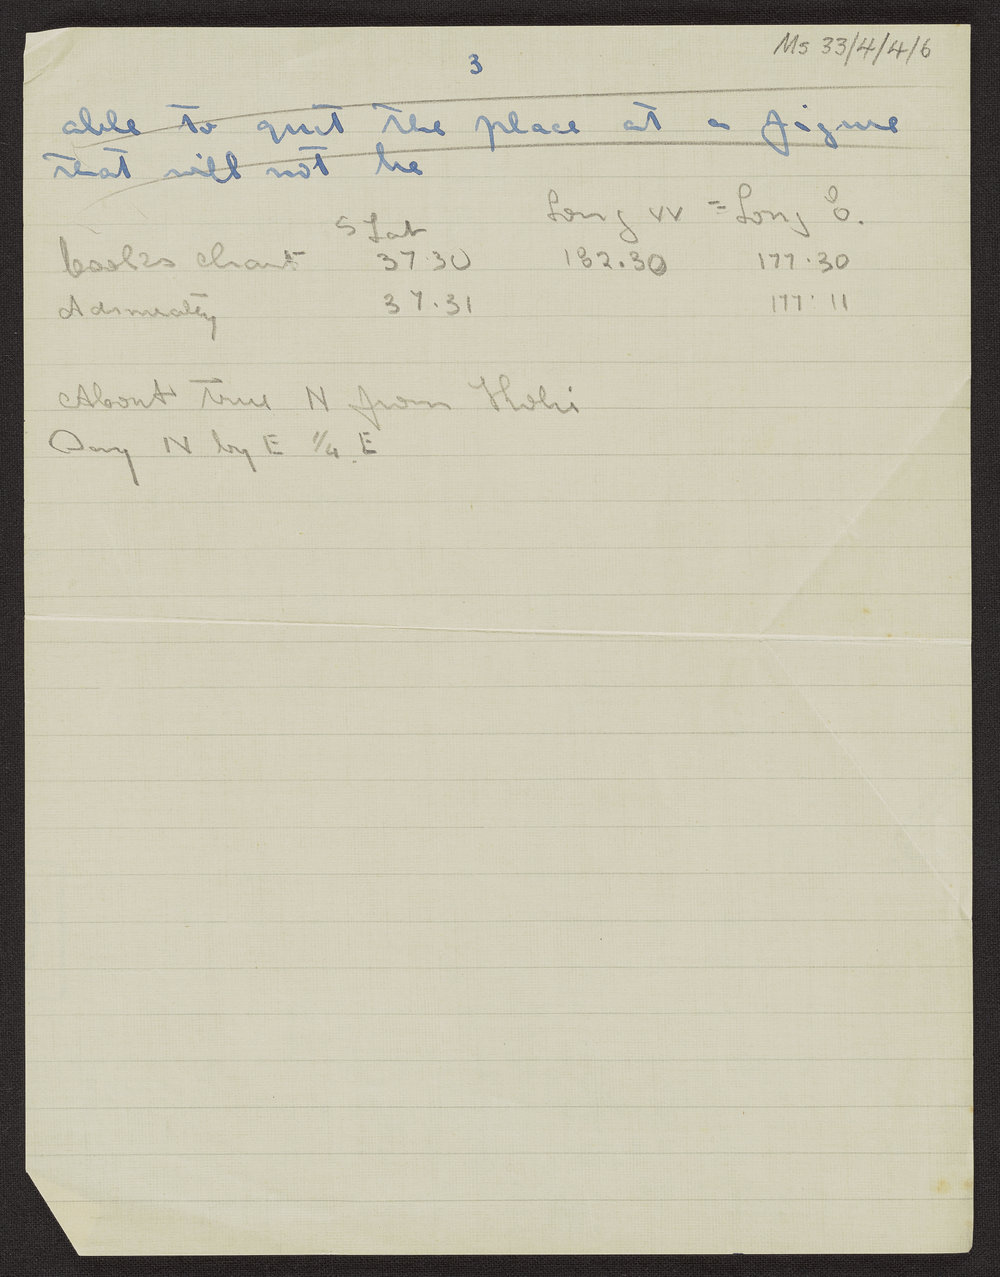 Ms 33/4/4/6
3
able to quit the place at a figure
that will not be
S Lat Long W = Long E.
Cooks chart 37.30 182.30 177.30
Admiralty 37.31 177.11
About true N from
Say N by E 1/4 E